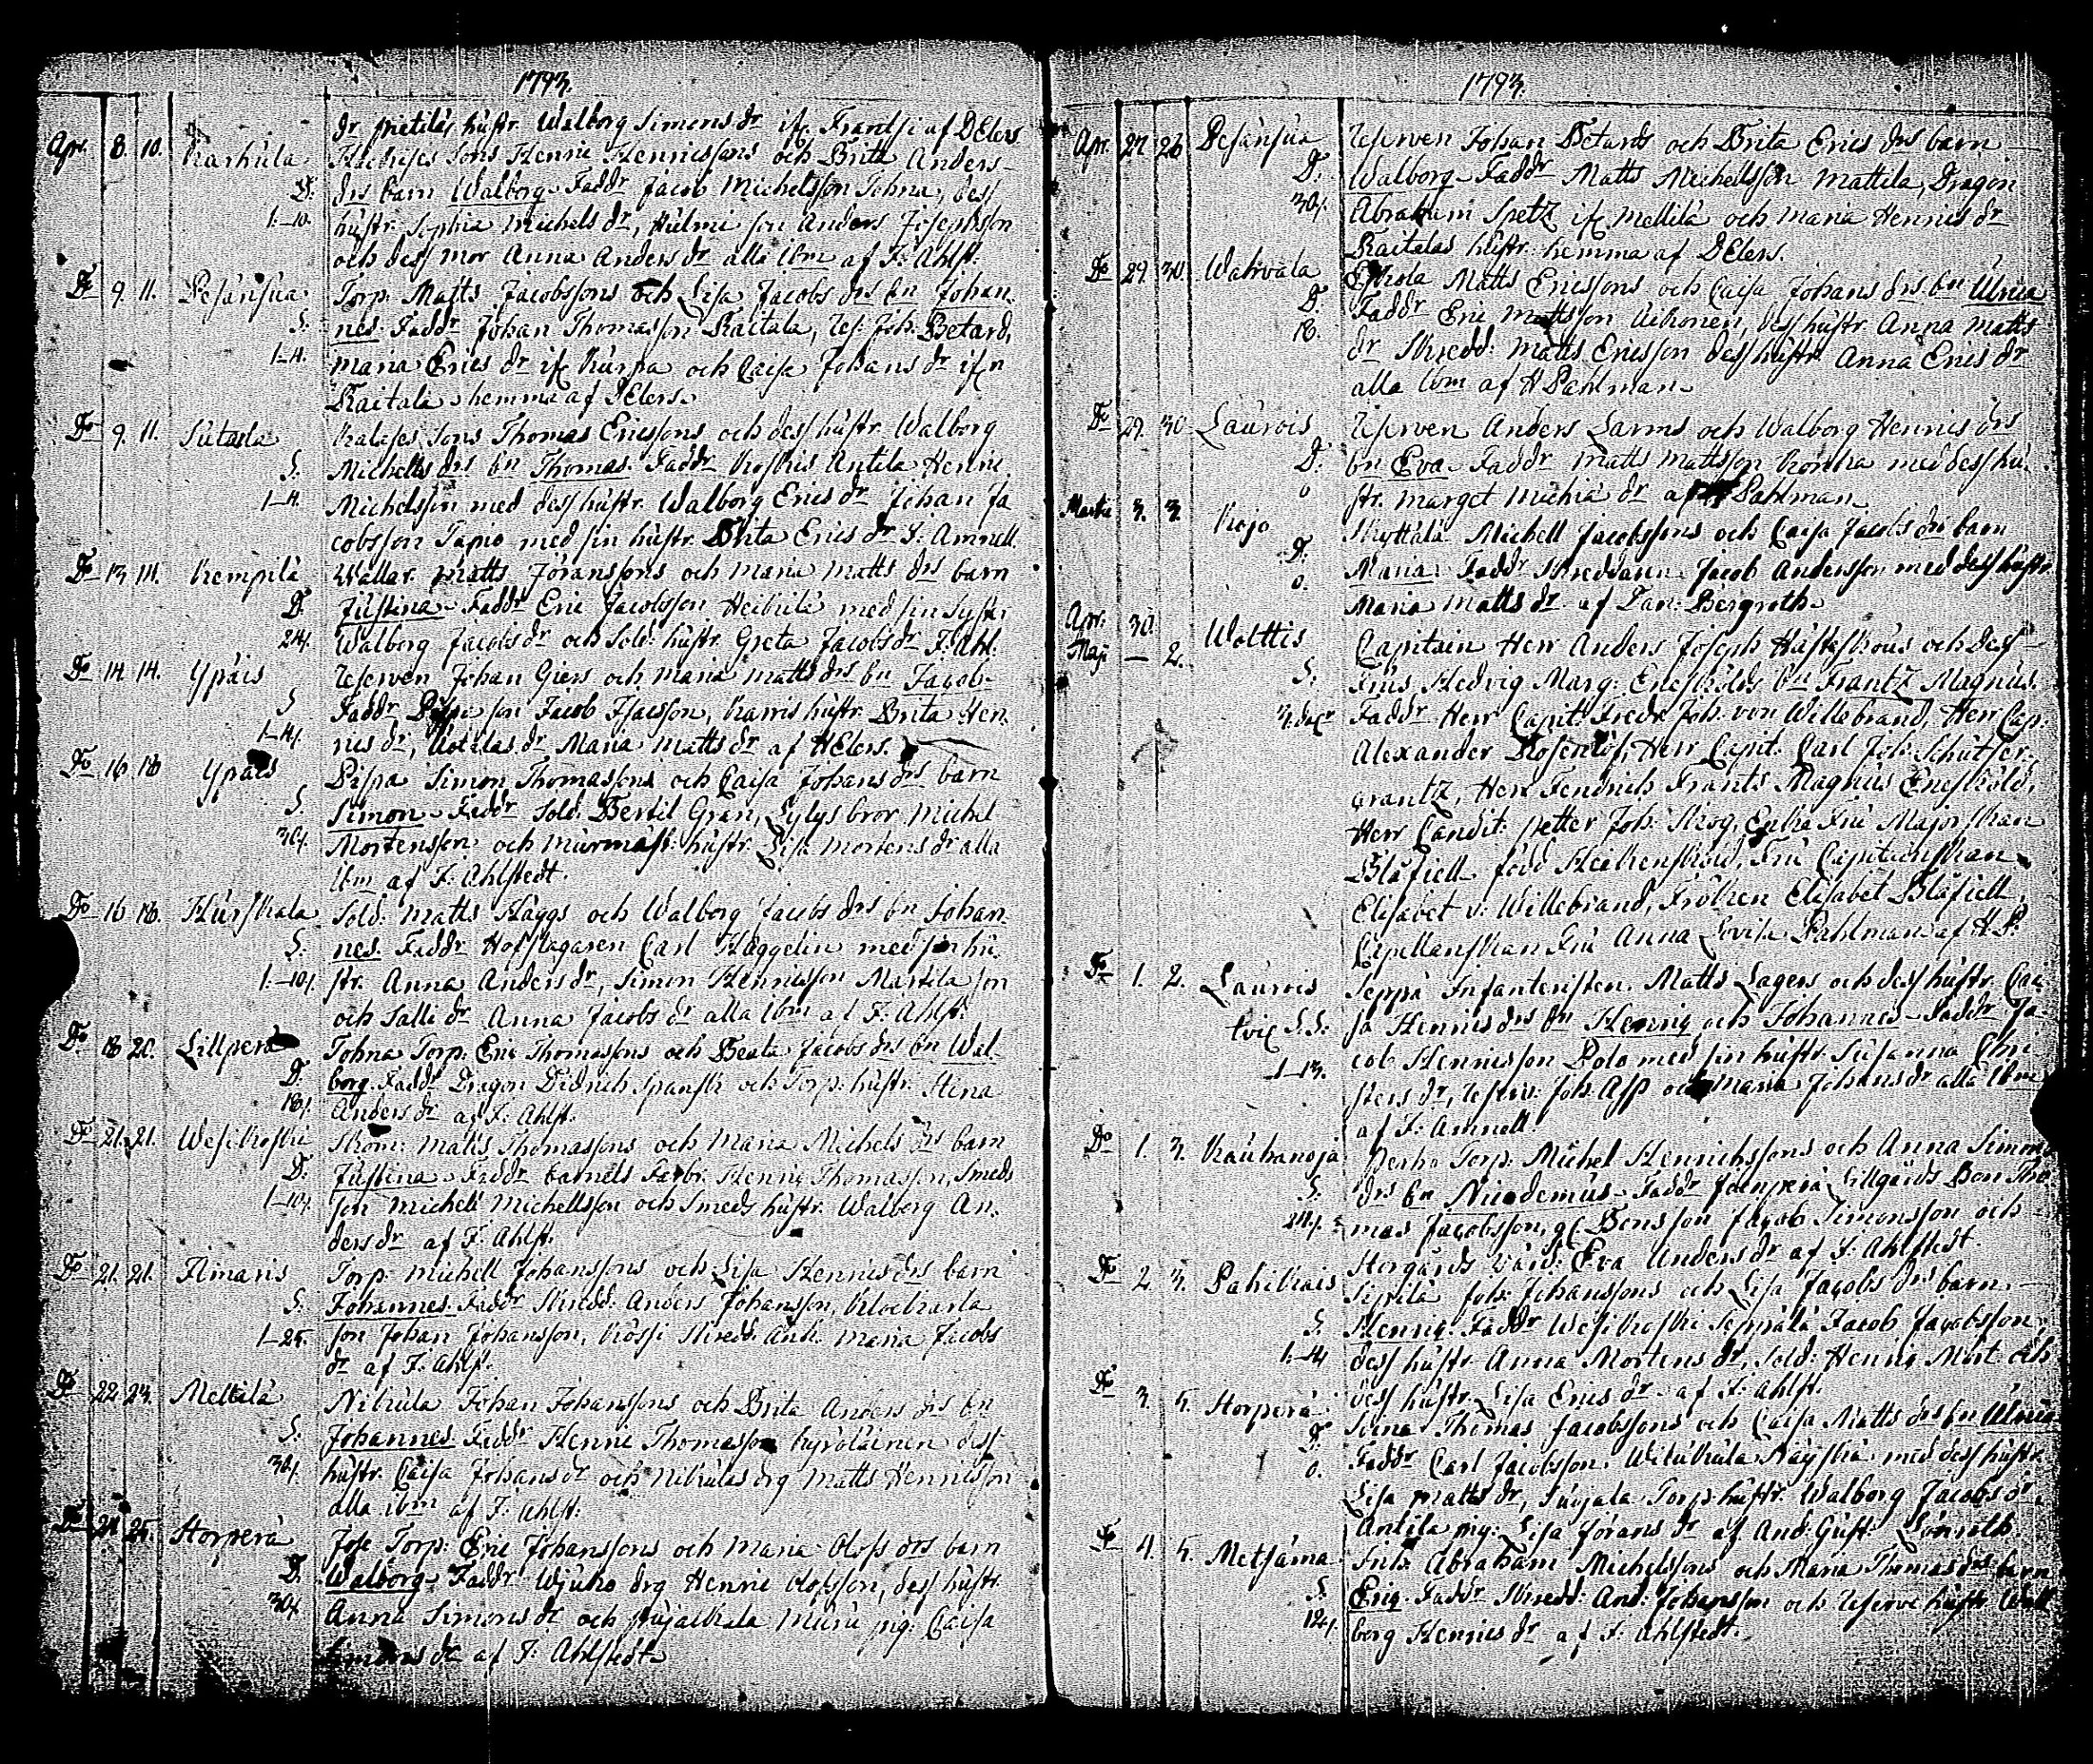 1793.
dr prietilas hustr. Walborg Simons dr ifr. Frantsi af D Elers
Apr. 8. 10. Karhula Sons Henric Henricssons och Britt Anders-
D: drs barn Walborg. Faddr Jacob Michelsson Tohna, dess
1.-10. hustr. Sophia Michels dr, Hulmi son Anders Josephsson
och dess mor Anna Anders dr alla ibm af F: Ahlst.
Do 9. 11. Pesänsua Torp: Matts Jacobssons och Lisa Jacobs drs bn Johan-
S: nes. Faddr Johan Thomasson Raitala, Res: Joh: Betard,
1-4. Maria Erics dr ifr Kurpa och Caisa Johans dr ifr
Raitala hemma af D Elers.
Do 9. 11. Sutarla Sons Thomas Ericssons och dess hustr. Walborg
S. Michells drs bn Thomas. Faddr Antila Henric
1-4. Michelsson med dess hustr. Walborg Erics dr Johan Ja
cobsson Tapio med sin hustr. Brita Erics dr J: Amnell.
Do 13 14. Kempilä Wallar. Matts Joranssons och Maria Matts drs barn
D. Justina. Faddr Eric Jacobsson Heikilä med sin syster
24/. Walborg Jacobs dr och Sold: hustr. Greta Jacobs dr F: Ahl.
Do 14 14. Ypäis Reserven Johan Giers och Maria Matts drs bn Jacob.
S Faddr son Jacob Isacsson, Karris hustr. Brita Hen
1-4/. rics dr, Uotilas dr Maria Matts dr af H Elers.
Do 16 18 Ypäis Pispa Simon Thomassons och Caisa Johans drs barn
S. Simon. Faddr Sold. Bertil Gran, Sylys bror Michel
30/. Mortensson och murmäst: hustr. Lisa Mortens dr alla
ibm af F: Ahlstedt.
Do 16 18. Hurskala Sold. Matts Häggs och Walborg Jacobs drs bn Johan-
S. nes. Faddr Hofslagaren Carl Häggelin med sin hu-
1.-10/. str. Anna Anders dr, Simon Henricsson Martila son
och Salli dr Anna Jacobs dr alla ibm af F: Ahlst.
Do 18 20. Lillperä Tohna Torp: Eric Thomassons och Beata Jacobs drs bn Wal-
D: borg. Faddr Dragon Didrich Spansk och Torp: hustr. Stina
18/. Anders dr af F: Ahlst.
Do 21. 21. Wesikoski Skom: Matts Thomassons och Maria Michels drs barn
D: Justina. Faddr barnets Farbr. Henric Thomasson, Smeds
1-10/. son Michell Michellsson och Smeds hustr. Walborg An-
ders dr af F: Ahlst.
Do 21. 21. Aimaris Torp: Michell Johanssons och Lisa Henrics drs barn
S. Johannes. Faddr Skredd: Anders Johansson,
1-25. son Johan Johansson, Skredd: Maria Jacobs
dr af F: Ahlst.
Do 22 23. Mellilä Nikula Johan Johanssons och Brita Anders drs bn
S. Johannes. Faddr Henric Thomasson dess
30/. hustr. Caisa Johans dr och Nikulas drg Matts Henricsson
alla ibm af F: Ahlst.
Do 24 25. Storperä Jose Torp: Eric Johanssons och Maria Olofs drs barn
D. Walborg. Faddr Wjuho drg Henric Olofsson, dess hustr.
30/. Anna Simons dr och pig: Caisa
Simons dr af F: Ahlstedt.
1793.
Apr. 27. 28 Pesänsua Reserven Johan Betards och Brita Erics drs barn
D: Walborg. Faddr Matts Michellsson Mattila, Dragon
30/. Abraham Spetz ifr Mellilä och Maria Henrics dr
Raitalas hustr. hemma af D Elers.
Do 29. 30 Wahvala Matts Ericssons och Caisa Johans drs bn Ulrica
D. Faddr Eric Mattsson dess hustr. Anna Matts
18. dr Skredd: Matts Ericsson dess hustr. Anna Erics dr
alla ibm af H Pahlman.
Do 29. 30 Laurois Reserven Anders Larms och Walborg Henrics drs
D: bn Eva. Faddr Matts Mattsson med dess hu-
0 str. Marget dr af Pahlman.
3. 3. Kojo Skyttälä Michell Jacobssons och Caisa Jacobs drs barn
D: Maria. Faddr Skreddaren Jacob Andersson med dess hustr
0. Maria Matts dr af Dan: Bergroth.
Apr: 30. Maji — 2. Wolttis Capitain Herr Anders Joseph Hästeskous och dess
S. Frus Hedvig Marg: Enesköldz bn Frantz Magnus.
3. dagr Faddr Herr Capit: Fredr. Joh: von Willebrand, Herr Cap:
Alexander Rosenlöf, Herr Capit: Carl Joh: Schutser-
crantz, Herr Fendrich Frants Magnus Enesköld,
Herr Candit: Petter Joh: Skog, Enke Fru Majorskan
Blåfiell född Fru Capitainskan
Elisabet v: Willebrand, Fröken Elisabet Blåfiell,
Capellanskan Fru Anna Lovisa Pahlman af H: P.
Do 1. 2. Laurois Seppä Infanteristen Matts Lagers och dess hustr. Cai
tvil. S.S: sa Henrics drs bn Henric och Johannes. Faddr Ja-
1-13. cob Henricsson Polo med sin hustr. Susanna Chri-
sters dr, Reserv: Joh: Asp och Maria Johans dr alla ibm
af J: Amnell
Do 1. 3. Kauhanoja Perho Torp: Michel Henrichssons och Anna Simons
S. drs bn Nicodemus. Faddr Lillgårds Bon Tho
24/. mas Jacobsson, Bonsson Jacob Simonsson och
Storgårds värd: Eva Anders dr af F: Ahlstedt.
Do 2. 3. Pahikais Sipilä Joh: Johanssons och Lisa Jacobs drs barn
S. Henric. Faddr Wesikoski Seppälä Jacob Jacobsson
1.-14 dess hustr. Anna Mortens dr, Sold: Henric Mört och
dess hustr. Lisa Erics dr af F: Ahlst.
Do 3. 5. Storperä Thomas Jacobssons och Caisa Matts drs bn Ulrica
D: Faddr Carl Jacobsson, med dess hustr
0. Lisa Matts dr, Torp hustr. Walborg Jacobs dr
Antila pig: Lisa Jorans dr af And: Gust: Lönroth.
Do 4. 5. Metsämaa Abraham Michelssons och Maria Thomas drs barn
S. Eric. Faddr Skredd: And: Johansson och Reserve hustr. Wal
12/. borg Henrics dr af F: Ahlstedt.